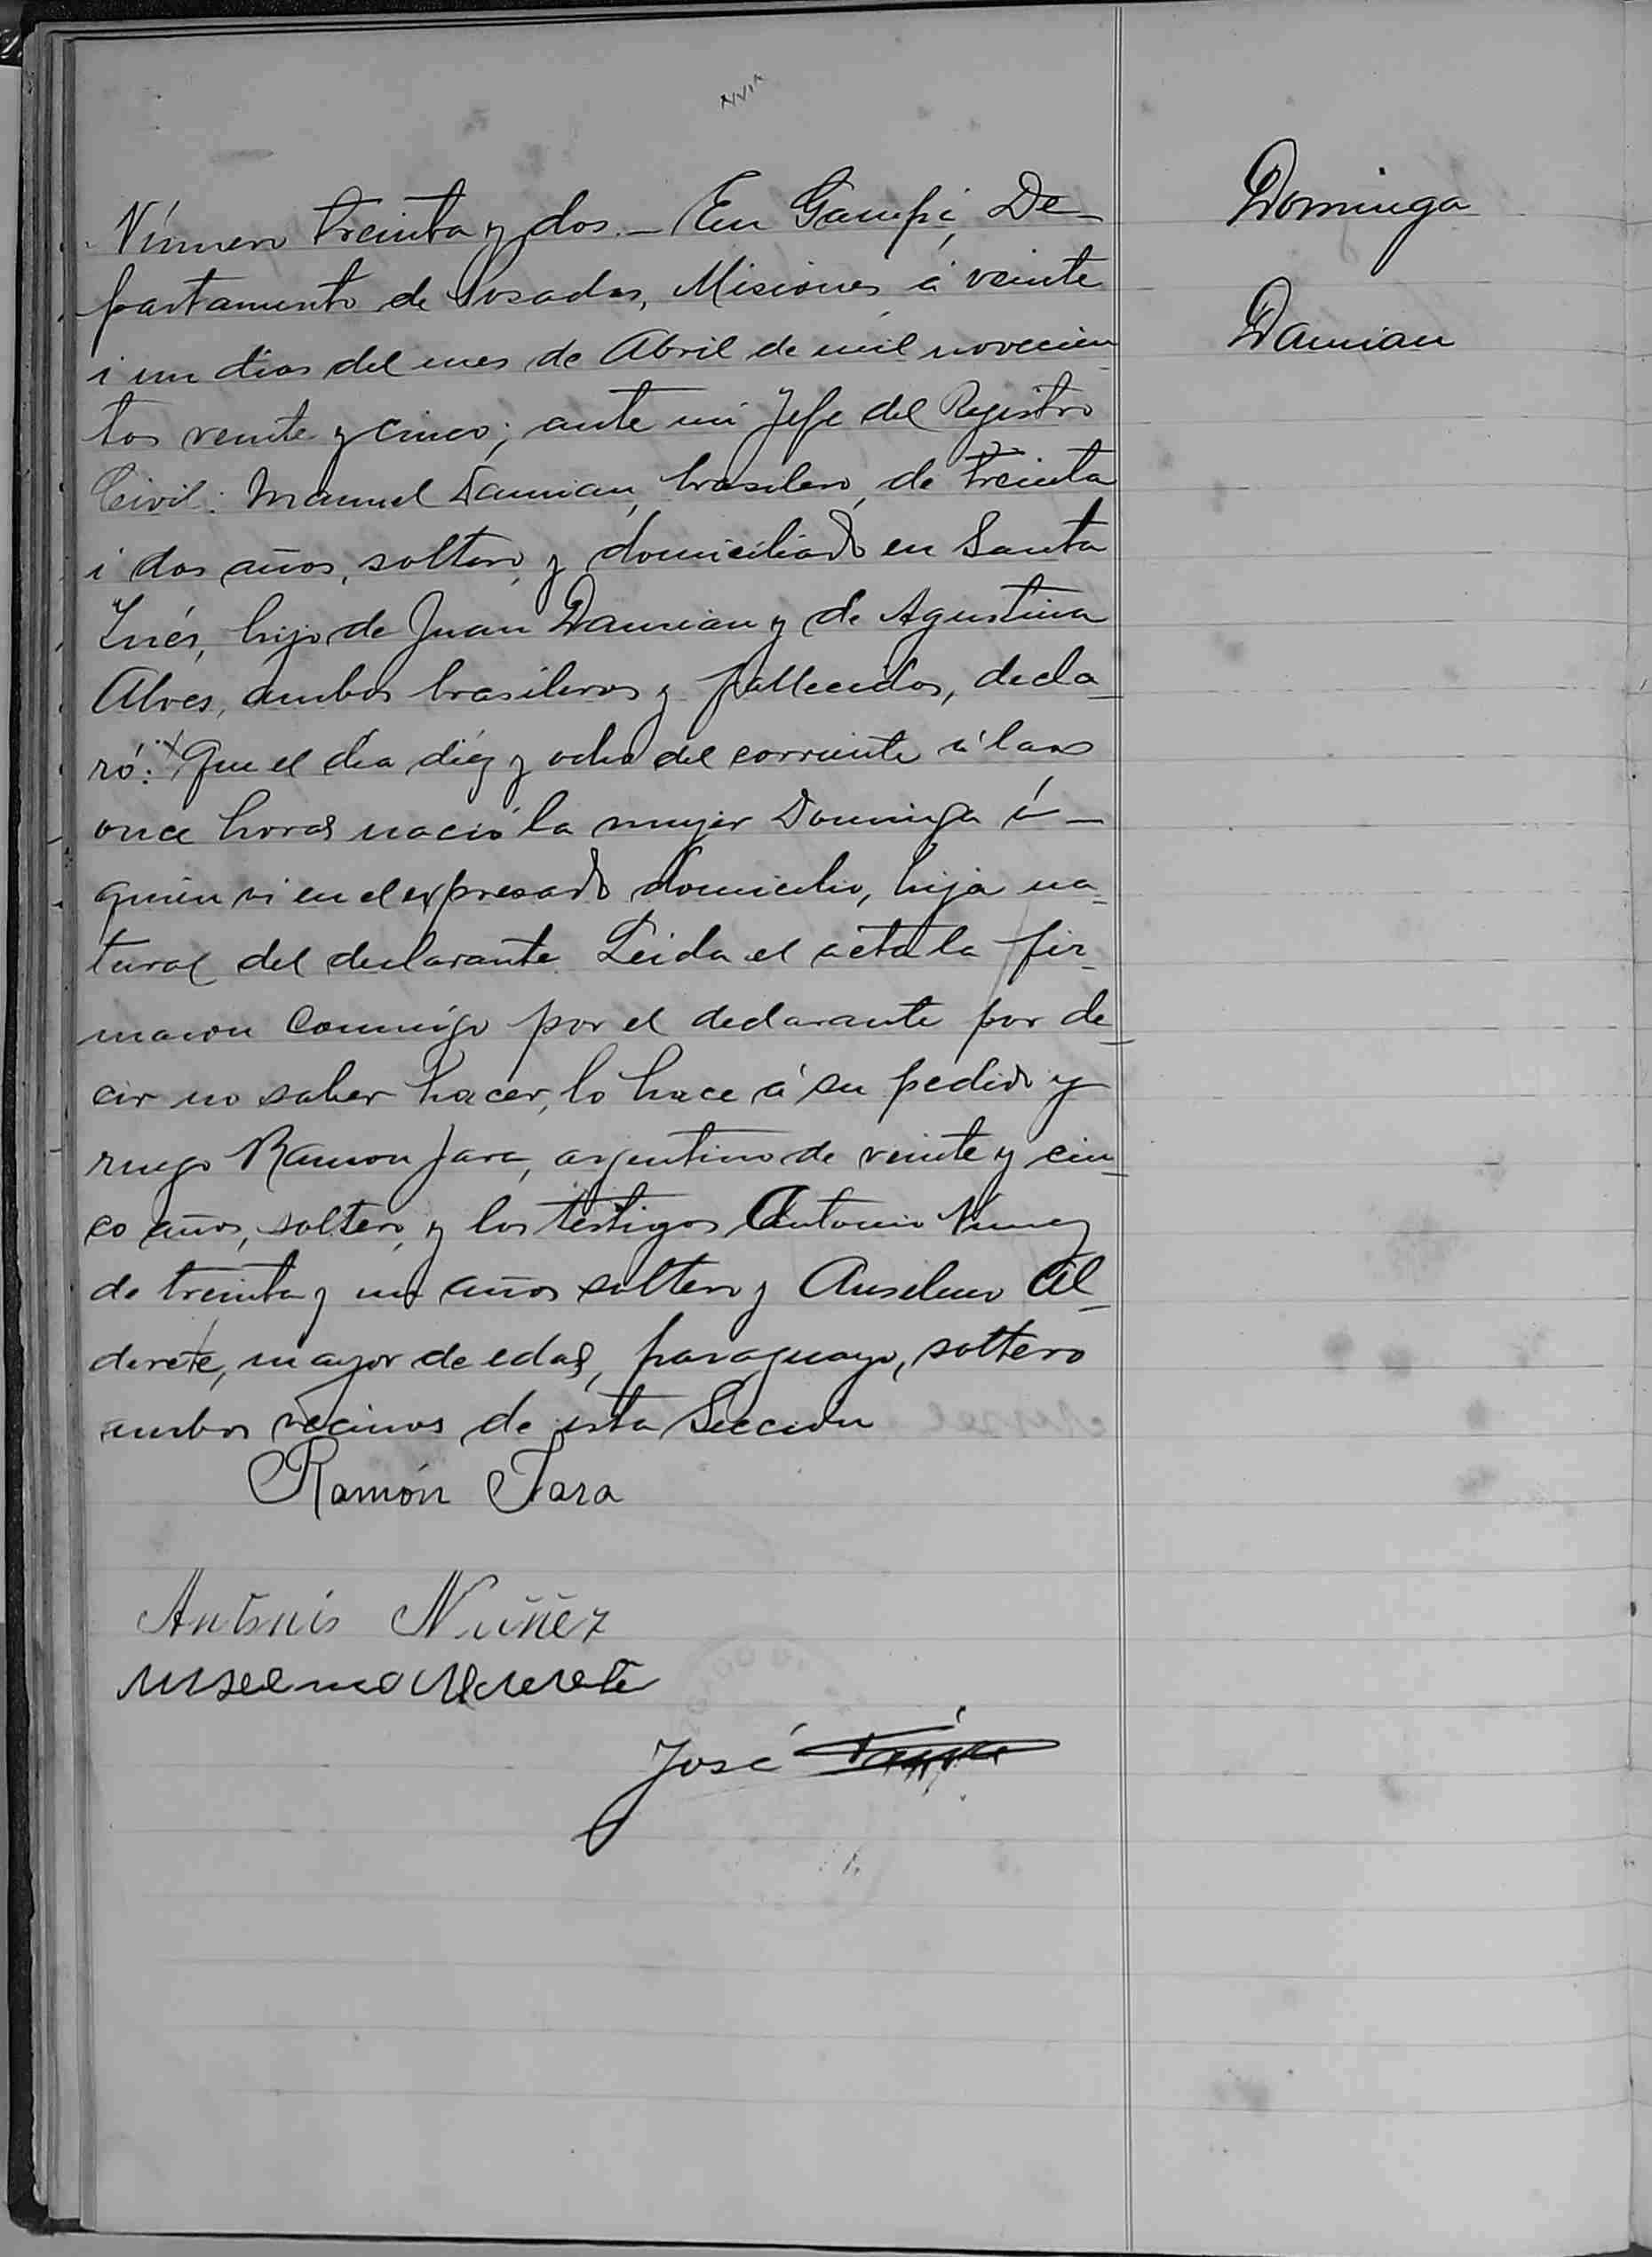 Domingo
Damian
Número treinta y dos.— En Garupá, De-
partamento de Posadas, Misiones á veinte
i un dias del mes de Abril de mil novecien-
tos veinte y cinco; ante mi Jefe del Registro
Civil: Manuel Damian, brasilero, de treinta
i dos años, soltero, y domiciliado en Santa
Inés, hijo de Juan Damian y de Agustina
Alves, ambos brasileros y fallecidos, decla-
ró: Que el día diéz y ocho del corriente á las
once horas nació la mujer Dominga á—
quien vi en el expresado domicilio, hija na-
tural del declarante. Leida el acta la fir-
maron conmigo por el declarante por de-
cir no saber hacer, lo hace á su pedido y
ruego Ramon Jara, argentino de veinte y cin-
co años, soltero, y los testigos Antonio Nunez
de treinta y un años soltero y Anselmo Al-
derete, mayor de edad, paraguayo, soltero
ambos vecinos de esta Sección
Ramón Jara
Antonio Núñez
Anselmo Alderete
José